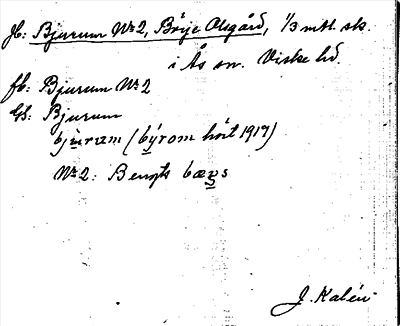 Jb: Bjurum Nr 2, Börje Olsgård, 1/3 mtl. sk.
i Ås sn. Viske hd.
fb: Bjurum Nr 2
Gb: Bjurum
bjuram (býrom hört 1917)
Nr 2: Bengts
J. Kalén